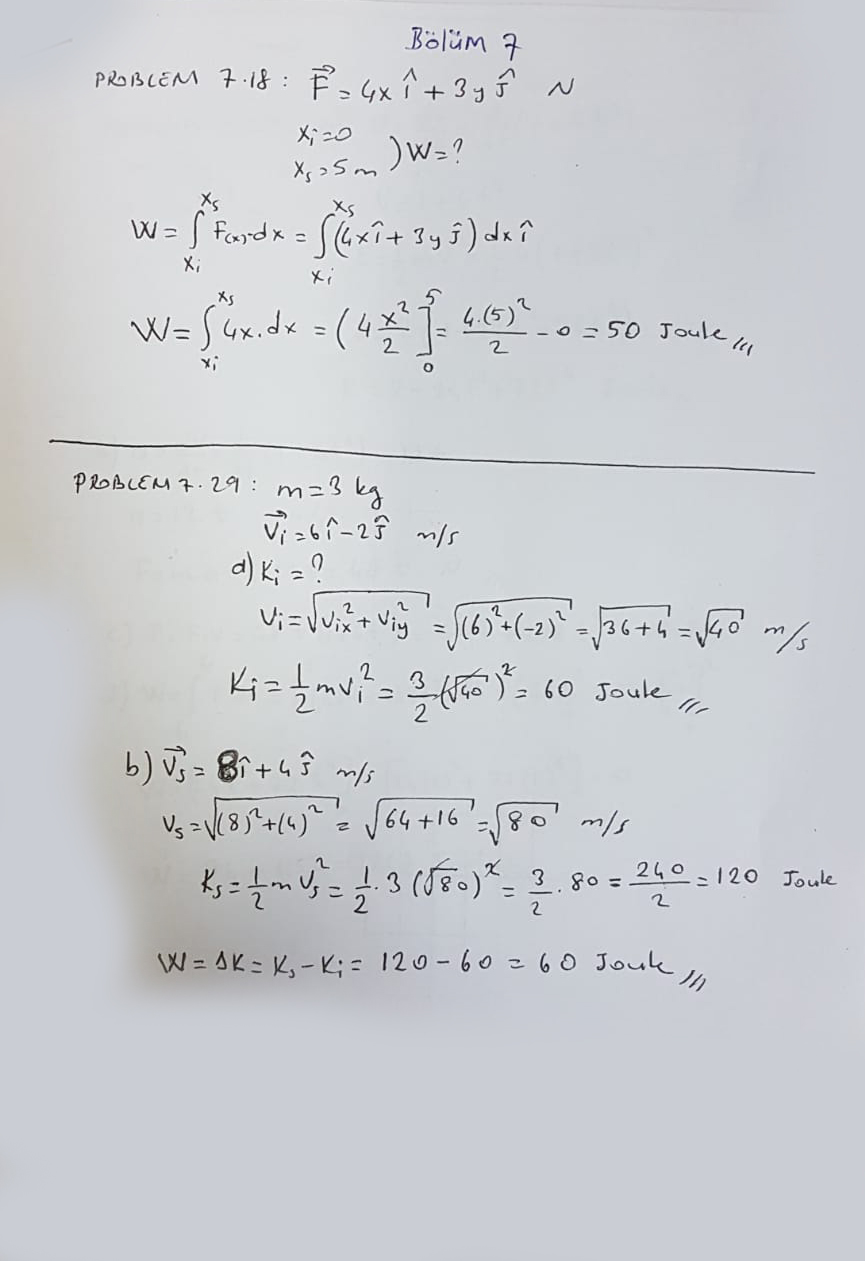 Bölüm 7
PROBLEM 7.18 : F⃗ = 4x î + 3y ĵ N
xᵢ=0
xₛ=5 m ) W=?
W = ∫_{xᵢ}^{xₛ} F(x).dx = ∫_{xᵢ}^{xₛ} (4xî + 3yĵ) dx î
W = ∫_{xᵢ}^{xₛ} 4x.dx = (4 x²/2 ]₀⁵ = 4.(5)²/2 - 0 = 50 Joule
PROBLEM 7.29 : m=3 kg
V⃗ᵢ = 6î - 2ĵ m/s
a) Kᵢ = ?
Vᵢ = √(Vᵢₓ² + Vᵢy²) = √((6)²+(-2)²) = √(36+4) = √40 m/s
Kᵢ = 1/2 mVᵢ² = 3/2 (√40)² = 60 Joule
b) V⃗ₛ = 8î + 4ĵ m/s
Vₛ = √((8)²+(4)²) = √(64+16) = √80 m/s
Kₛ = 1/2 m Vₛ² = 1/2 . 3 (√80)² = 3/2 . 80 = 240/2 = 120 Joule
W = ΔK = Kₛ - Kᵢ = 120 - 60 = 60 Joule